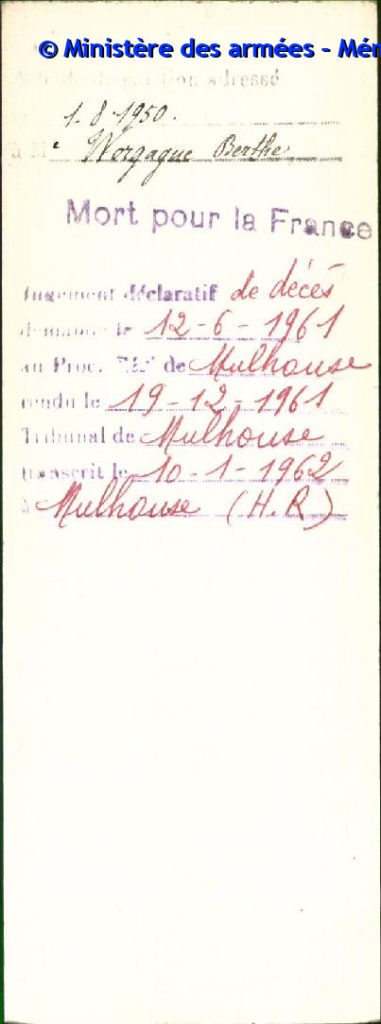 © Ministère des armées - Mém
Acte de disparition adressé
1-8-1950.
à M Worgague Berthe
Mort pour la France
Jugement déclaratif de décès
demandé le 12-6-1961
au Proc. de Mulhouse
rendu le 19-12-1961
Tribunal de Mulhouse
transcrit le 10-1-1962
à Mulhouse (H.R)